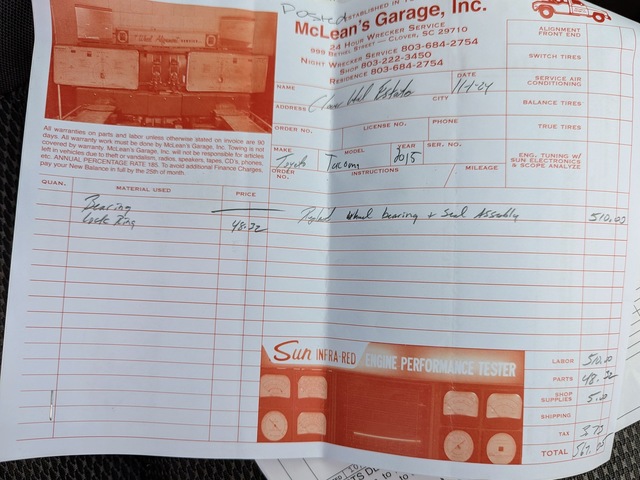 Posted
ESTABLISHED IN
McLean's Garage, Inc.
24 HOUR WRECKER SERVICE
999 BETHEL STREET — CLOVER, SC 29710
NIGHT WRECKER SERVICE 803-684-2754
SHOP 803-222-3450
RESIDENCE 803-684-2754
All warranties on parts and labor unless otherwise stated on invoice are 90
days. All warranty work must be done by McLean's Garage, Inc. Towing is not
covered by warranty. McLean's Garage, Inc. will not be responsible for articles
left in vehicles due to theft or vandalism, radios, speakers, tapes, CD's, phones,
etc. ANNUAL PERCENTAGE RATE 18%. To avoid additional Finance Charges,
pay your New Balance in full by the 25th of month.
NAME
DATE
11-1-24
ADDRESS
CITY
ORDER NO.
LICENSE NO.
PHONE
MAKE Toyota
MODEL Tacoma
YEAR 2015
SER. NO.
ORDER NO.
INSTRUCTIONS
MILEAGE
ALIGNMENT
FRONT END
SWITCH TIRES
SERVICE AIR
CONDITIONING
BALANCE TIRES
TRUE TIRES
ENG. TUNING W/
SUN ELECTRONICS
& SCOPE ANALYZE
QUAN.
MATERIAL USED
PRICE
Bearing
Lock Ring 48.32
Wheel bearing + Seal Assembly 510.00
Sun INFRA-RED ENGINE PERFORMANCE TESTER
LABOR 510.00
PARTS 48.32
SHOP
SUPPLIES 5.00
SHIPPING
TAX 3.73
TOTAL 567.05